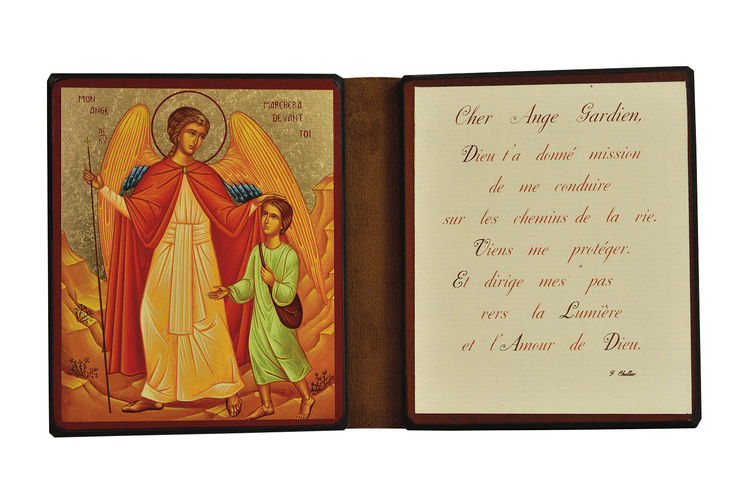 MON
ANGE
MARCHERA
DEVANT
TOI
Cher Ange Gardien,
Dieu t'a donné mission
de me conduire
sur les chemins de la vie.
Viens me protéger.
Et dirige mes pas
vers la Lumière
et l'Amour de Dieu.